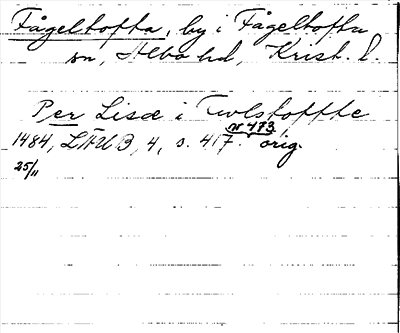 Fågeltofta, by i Fågeltofta
sn, Albo hd, Krist. l.
Per Lisæ i Fwlstoffthe
1484, LÄUB, 4, s. 417. orig.
nr 473
25/11